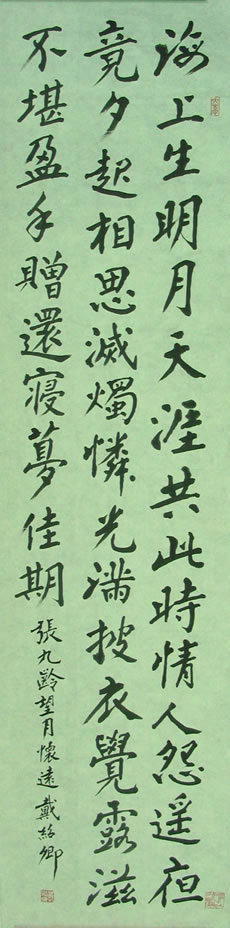 海上生明月天涯共此時情人怨遥夜
竟夕起相思滅燭憐光滿披衣覺露滋
不堪盈手贈還寢夢佳期
張九齡望月懷遠 戴紹卿